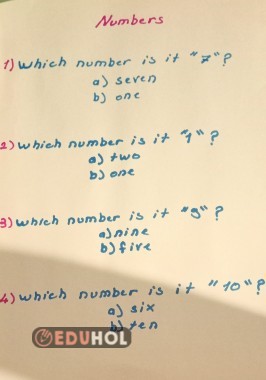 Numbers
1) Which number is it "7"?
a) seven
b) one
2) which number is it "1"?
a) two
b) one
3) which number is it "9"?
a) nine
b) five
4) which number is it "10"?
a) six
b) ten
EDUHOL